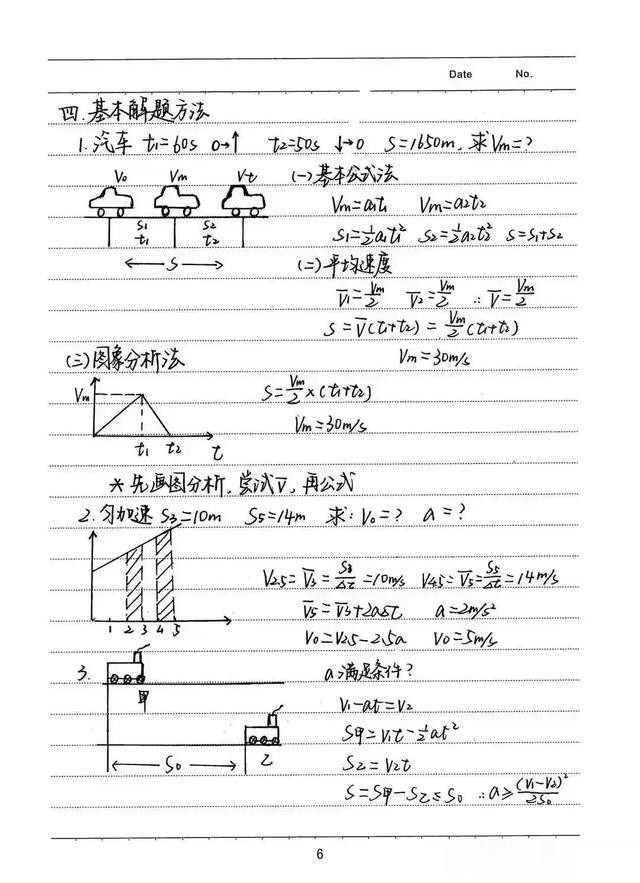 Date No.
四.基本解题方法
1.汽车 t₁=60s 0→↑ t₂=50s ↓→0 S=1650m,求Vm=?
V₀ Vm Vt
S₁ S₂
t₁ t₂
S
(一)基本公式法
Vm=a₁t₁ Vm=a₂t₂
S₁=½a₁t₁² S₂=½a₂t₂² S=S₁+S₂
(二)平均速度
V̅₁=Vm/2 V̅₂=Vm/2 ∴V̅=Vm/2
S=V̅(t₁+t₂)=Vm/2(t₁+t₂)
Vm=30m/s
(三)图象分析法
Vm
t₁ t₂ t
S=Vm/2×(t₁+t₂)
Vm=30m/s
*先画图分析,尝试V̅,再公式
2.匀加速 S₃=10m S₅=14m 求:V₀=? a=?
1 2 3 4 5
V2.5=V̅₃=S₃/Δt=10m/s V4.5=V̅₅=S₅/Δt=14m/s
V̅₅=V̅₃+2aΔt a=2m/s²
V₀=V2.5-2.5a V₀=5m/s
3.
甲
S₀ 乙
a满足条件?
V₁-at=V₂
S甲=V₁t-½at²
S乙=V₂t
S=S甲-S乙≤S₀ ∴a≥(V₁-V₂)²/2S₀
6